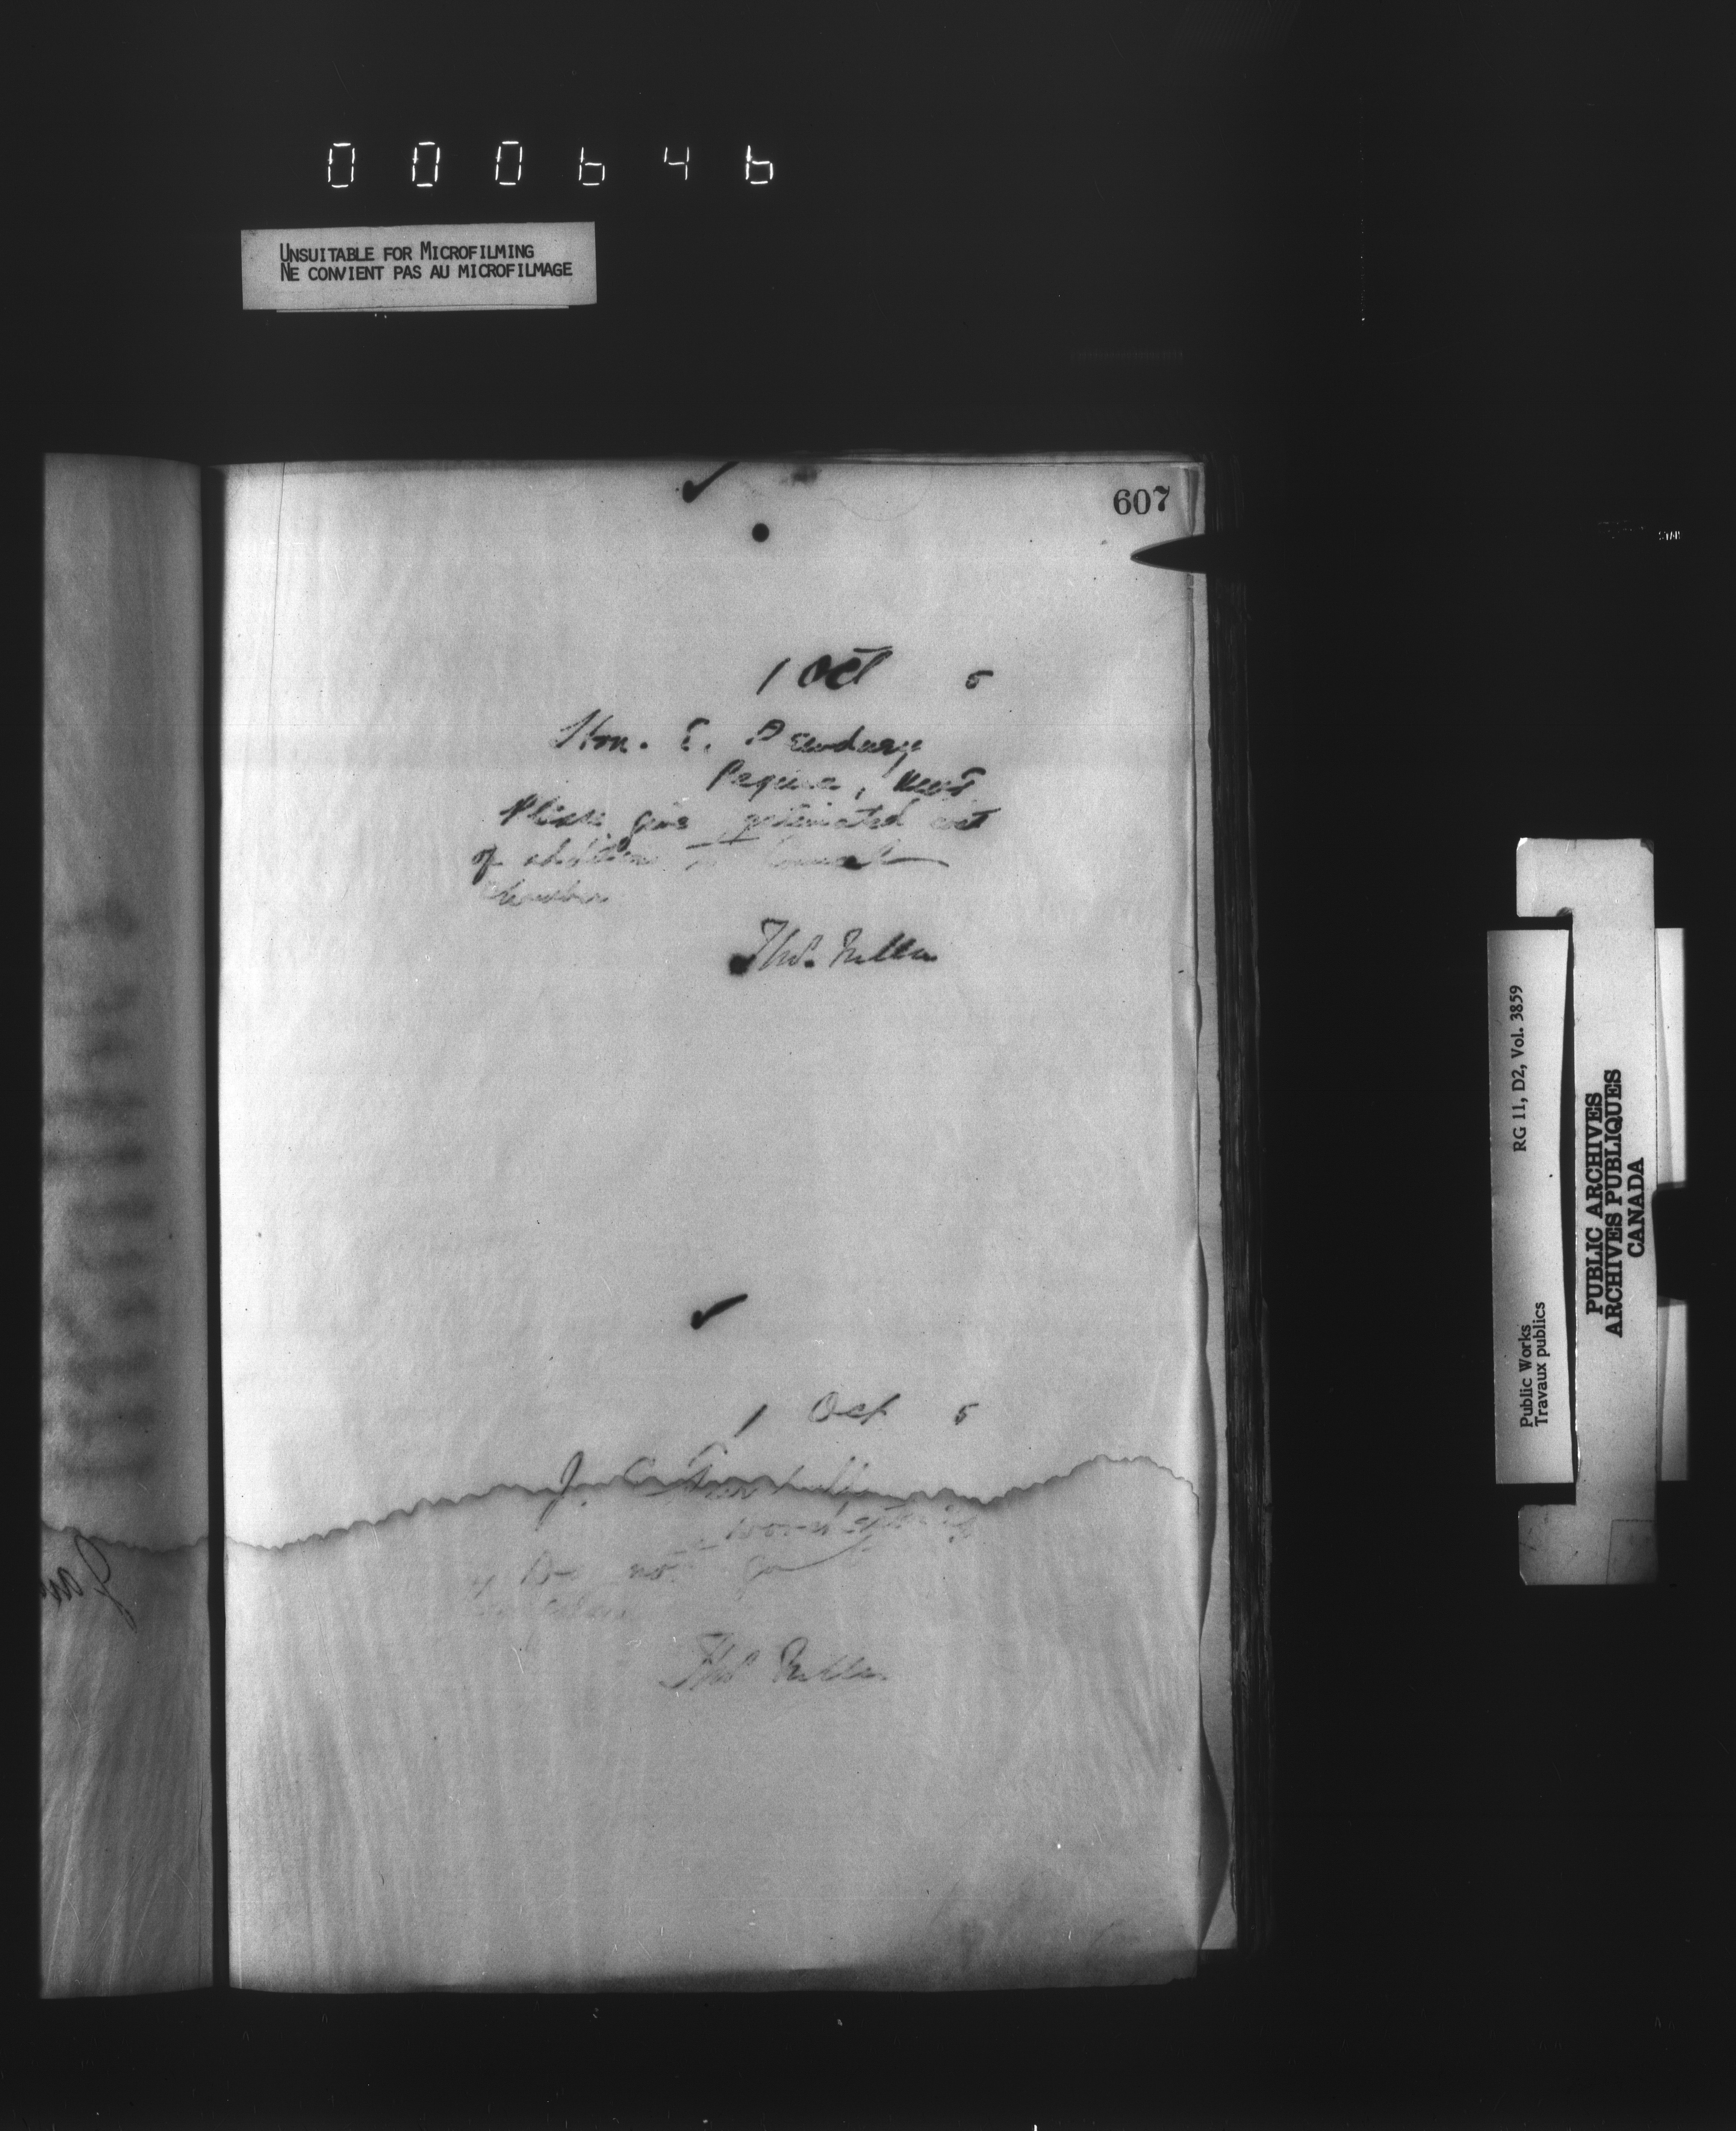 000646
UNSUITABLE FOR MICROFILMING
NE CONVIENT PAS AU MICROFILMAGE
607
1 Oct 5
Hon. E. Dewdney
Regina, NWT
Please give estimated cost
of addition to Council
Chamber
Thos. Fuller
1 Oct 5
J. C.
Do not go
Thos Fuller
Public Works
Travaux publics
RG 11, D2, Vol. 3859
PUBLIC ARCHIVES
ARCHIVES PUBLIQUES
CANADA